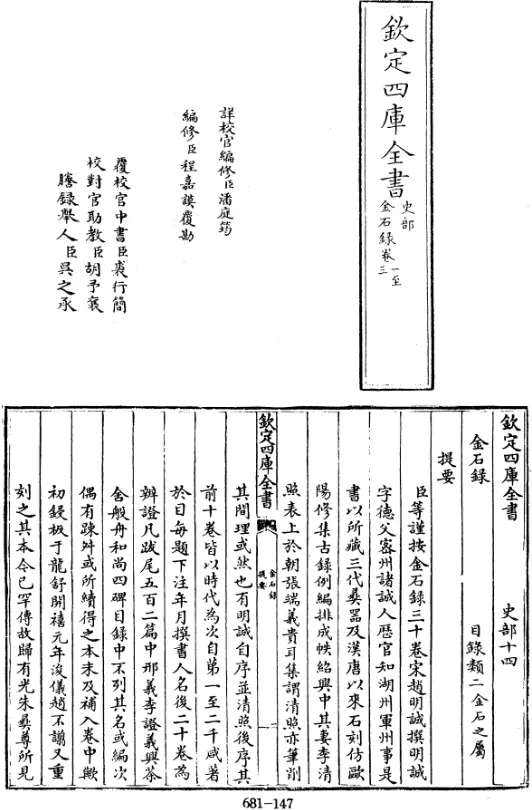 欽定四庫全書
史部
金石錄卷一至三
詳校官編修臣潘庭筠
編修臣程嘉謨覆勘
覆校官中書臣裘行簡
校對官助教臣胡予襄
謄錄舉人臣吳之承
欽定四庫全書
史部十四
金石錄
目錄類二金石之屬
提要
臣等謹按金石錄三十卷宋趙明誠撰明誠
字德父密州諸城人歴官知湖州軍州事是
書以所藏三代彛器及漢唐以來石刻仿歐
陽修集古錄例編排成帙紹興中其妻李清
照表上於朝張端義貴耳集謂清照亦筆削
欽定四庫全書
金石錄
提要
一
其間理或然也有明誠自序並清照後序其
前十卷皆以時代為次自第一至二千咸著
於目每題下注年月撰書人名後二十卷為
辨證凡跋尾五百二篇中邢義李證義興茶
舍般舟和尚四碑目錄中不列其名或編次
偶有疎舛或所續得之本未及補入卷中歟
初鋟板于龍舒開禧元年浚儀趙不譾又重
刻之其本今已罕傳故歸有光朱彛尊所見
681-147